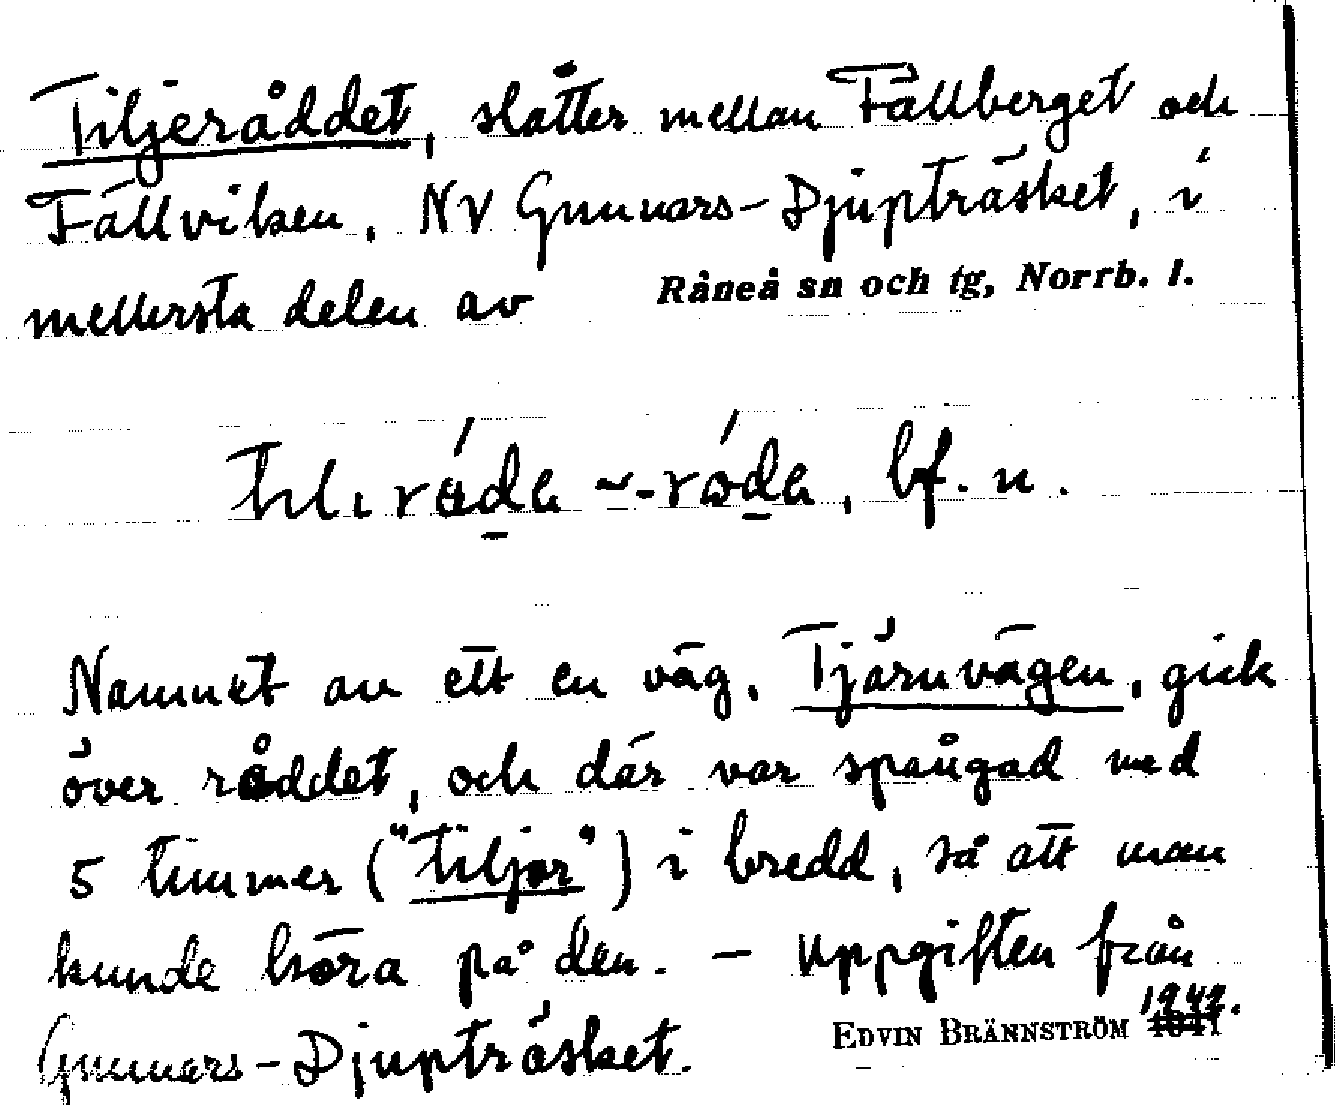 Tiljeråddet, slåtter mellan Fällberget och
Fällviken, NV Gunnars-Djupträsket, i
mellersta delen av Råneå sn och tg, Norrb. l.
bf. n.
Namnet av att en väg, Tjärnvägen, gick
över råddet, och där var spångad med
5 timmer ("tiljor") i bredd, så att man
kunde köra på den. – Uppgiften från
Gunnars-Djupträsket. EDVIN BRÄNNSTRÖM 1942.